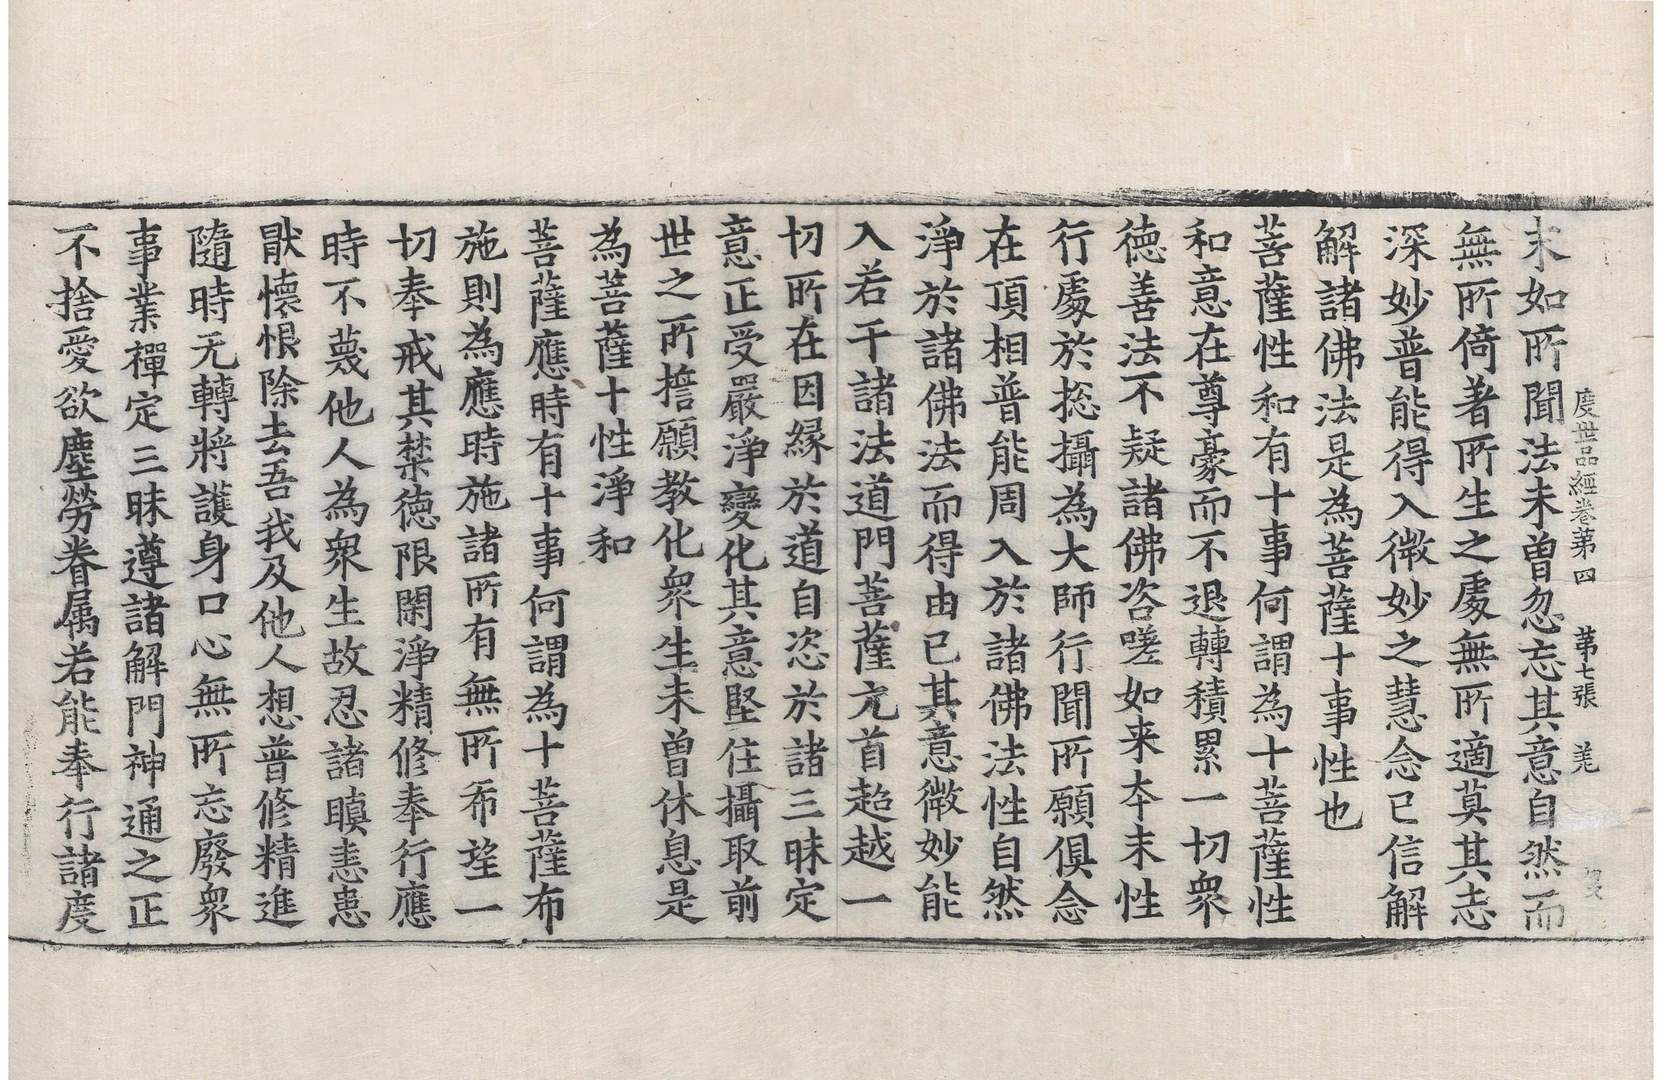 度世品經卷第四　第七張　羌
末如所聞法未曾忽忘其意自然而
無所倚著所生之處無所適莫其志
深妙普能得入微妙之慧念已信解
解諸佛法是為菩薩十事性也
菩薩性和有十事何謂為十菩薩性
和意在尊豪而不退轉積累一切衆
德善法不疑諸佛咨嗟如来夲末性
行處於捴攝為大師行聞所願俱念
在頂相普能周入於諸佛法性自然
淨於諸佛法而得由已其意微妙能
入若干諸法道門菩薩元首超越一
切所在因緣於道自恣於諸三昧定
意正受嚴淨變化其意堅住攝取前
世之所擔願教化衆生未曾休息是
為菩薩十性淨和
菩薩應時有十事何謂為十菩薩布
施則為應時施諸所有無所希望一
切奉戒其禁德限閑淨精修奉行應
時不蔑他人為衆生故忍諸瞋恚患
猒懷恨除去吾我及他人想普修精進
隨時无轉將護身口心無所忘廢衆
事業禪定三昧遵諸解門神通之正
不捨愛欲塵勞眷属若能奉行諸度